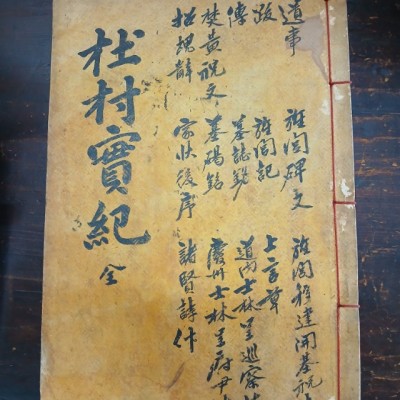 遺事 旌閭碑文 旌閭移建開基祝
跋 旌閭記 上言草
傳 墓誌銘 道內士林呈巡察
焚黃祝文 墓碣銘 慶州士林呈府尹
招魂辭 家狀後序 諸賢詩什
杜村實紀 全